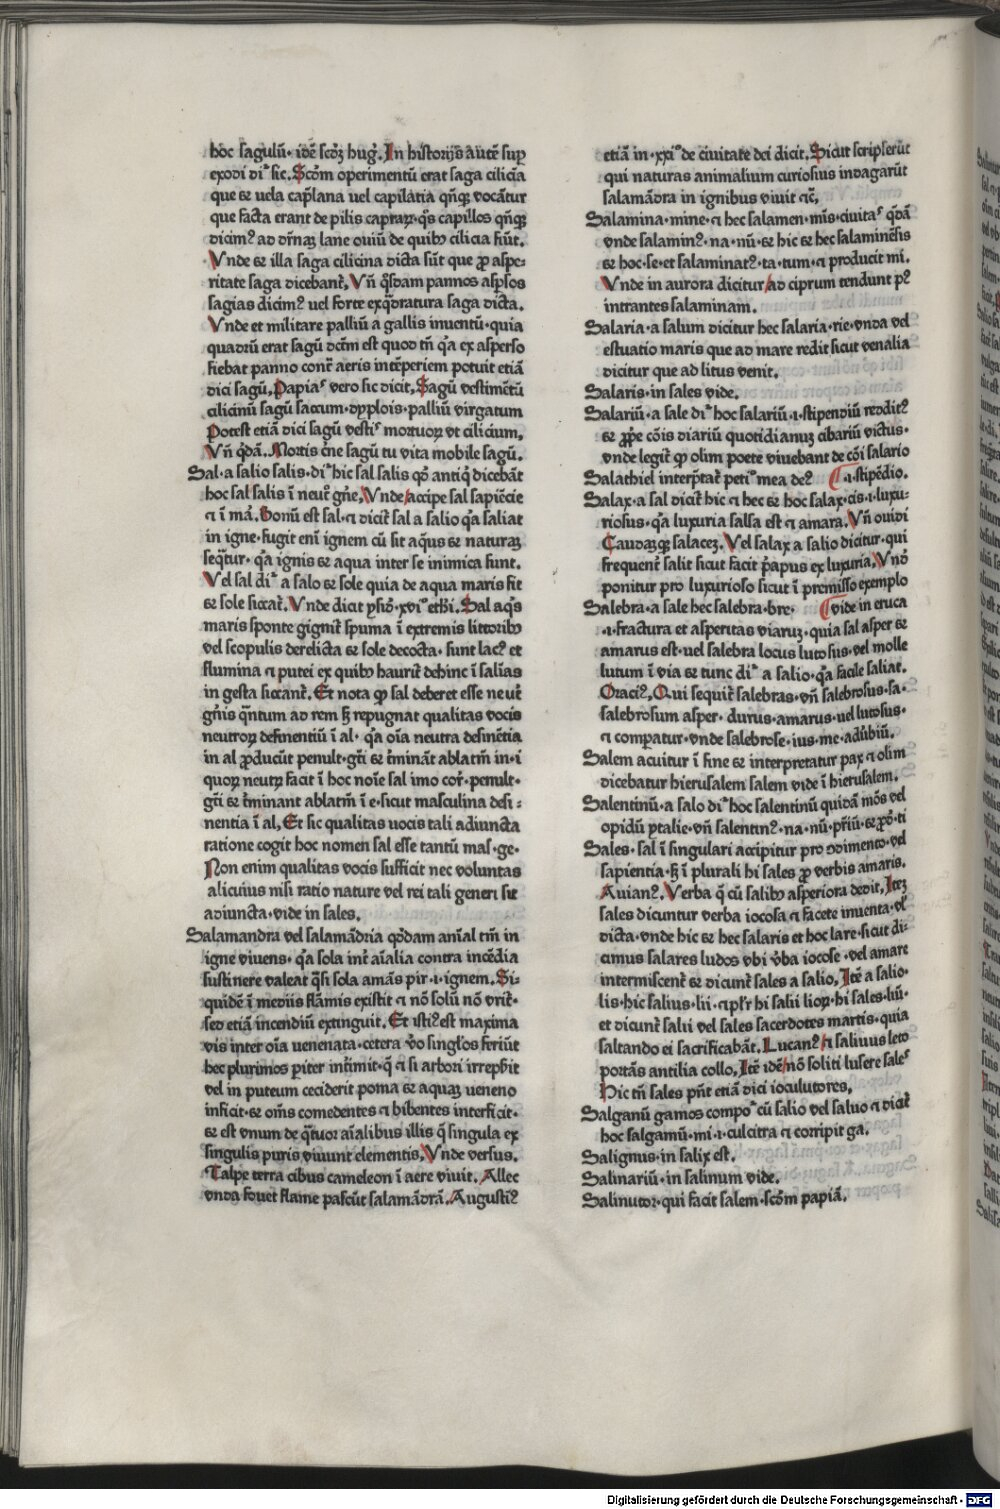 hoc sagulū· idē scdꝫ hug̕. In historijs autē suꝑ
exodi dr̄ sic. Scdm operimentū erat saga cilicia
que ⁊ uela cap̄lana uel capilatia qn̄qꝫ vocātur
que facta erant de pilis capraꝝ· q̄s capillos qn̄qꝫ
dicim⁹ ad dr̄naꝫ lane ouiū de quibꝰ cilicia fiūt.
Vnde ⁊ illa saga cilicina dicta sūt que ꝓ aspe-
ritate saga dicebant̄. Vn̄ q̄sdam pannos asp̄sos
sagias dicim⁹ uel forte exq̄dratura saga dicta.
Vnde et militare palliū a gallis inuentū· quia
quadrū erat sagū dctm est quod tn̄ q̄a ex asperso
fiebat panno contᷓ aeris intēperiem potuit etiā
dici sagū. Papias vero sic dicit. Sagū vestimētū
cilicinū sagū saccum· dyplois· palliū virgatum
Potest etiā dici sagū vestis mortuoꝝ vt cilicium.
Vn̄ q̄dā. Mortis om̄e sagū tu vita mobile sagū.
Sal· a salio salis· dr̄ hic sal salis qd̕ antiq̄ dicebāt
hoc sal salis ī neut̕ gn̄e. Vnde accipe sal sapiēcie
⁊ ī ma̕. Bonū est sal· ⁊ dicit̄ sal a salio q̄a saliat
in igne· fugit eni ignem cū sit aq̄us ⁊ naturaꝫ
seq̄tur· q̄a ignis ⁊ aqua inter se inimica sunt.
Vel sal dr̄ a salo ⁊ sole quia de aqua maris fit
⁊ sole siccat̄. Vnde dicit ysid̕· xvi· eth̄i. Sal aq̄s
maris sponte gignit̄ spuma ī extremis littoribꝰ
vel scopulis derelicta ⁊ sole decocta· sunt lac⁹ et
flumina ⁊ putei ex quibꝰ haurit̄ dehinc ī salīas
in gesta siccant̄. Et nota ꝙ sal deberet esse neut̕
gn̄is q̄ntum ad rem sꝫ repugnat qualitas vocis
neutroꝝ definentiū ī al· q̄a oīa neutra desinētia
in al ꝓducūt penult· gti ⁊ t̄minant ablatm̄ in· i
quoꝝ neutꝝ facit ī hoc noīe sal imo cor̄· penult·
gti ⁊ t̄minant ablatm̄ ī e· sicut masculina desi-
nentia ī al. Et sic qualitas uocis tali adiuncta
ratione cogit hoc nomen sal esse tantū mas· ge·
Non enim qualitas vocis sufficit nec voluntas
alicuius nisi ratio nature vel rei tali generi sit
adiuncta· vide in sales.
Salamandra vel salamādria qd̕dam an̄ial tm̄ in
igne viuens· q̄a sola int̕ aīalia contra incēdia
sustinere valeat q̄si sola amās pir· i· ignem. Si-
quidē ī mediis flāmis existit ⁊ nō solū nō vrit̄·
sed etiā incendiū extinguit. Et isti⁹ est maxima
vis inter oīa uenenata· cetera v̕o singl̕os feriūt
hec plurimos ꝑiter int̄imit· q̄ ⁊ si arbori irreps̄it
vel in puteum ceciderit poma ⁊ aquaꝫ ueneno
inficit· ⁊ om̄s comedentes ⁊ bibentes interficit·
⁊ est vnum de q̄tuor aīalibus illis q̄ singula ex
singulis puris viuunt elementis. Vnde versus.
Talpe terra cibus cameleon ī aere viuit. Allec
vnda fouet flāme pascūt salamādrā. Augusti⁹
etiā in· xxi· de ciuitate dei dicit. Sicut scripserūt
qui naturas animalium curiosius indagarūt
salamādra in ignibus viuit ⁊c̄.
Salamina· mine· ⁊ hec salamen· mīs· ciuitas q̄dā
vnde salamin⁹· na· nū· ⁊ hic ⁊ hec salaminēsis
⁊ hoc· se· et salaminat⁹· ta· tum· ⁊ producit mi.
Vnde in aurora dicitur ad ciprum tendunt p⁹
intrantes salaminam.
Salaria· a salium dicitur hec salaria· rie· vnda vel
estuatio maris que ad mare redit sicut venalia
dicitur que ad litus venit.
Salaris· in sales vide.
Salariū· a sale dr̄ hoc salariū· i· stipendiū reddit⁹
⁊ ꝓpe cōis diariū quotidianuꝫ cibariū victus·
vnde legit̄ ꝙ olim poete viuebant de cōi salario
Salathiel interp̄tat̄ petī mea de⁹ ¶ i· stipēdio.
Salax· a sal dicit̄ hic ⁊ hec ⁊ hoc salax· cis· i· luxu-
riosus· q̄a luxuria salsa est ⁊ amara. Vn̄ ouidi
Caudaꝫqꝫ salaceꝫ. Vel salax a salio dicitur· qui
frequent̄ salit sicut facit p̄apus ex luxuria. Vn̄o
ponitur pro luxurioso sicut ī premisso exemplo
Salebra· a sale hec salebra· bre· ¶ vide in eruca
i· fractura et asperitas viaruꝫ· quia sal asper ⁊
amarus est· uel salebra locus lutosus· vel molle
lutum ī via ⁊ tunc dr̄ a salio· q̄a facile saliat.
Oraci⁹. Qui sequit̄ salebras· vn̄ salebrosus· sa·
salebrosum asper· durus· amarus· uel lutosus·
⁊ comꝑatur· vnde salebrose· ius· me· adūbiū.
Salem acuitur ī fine ⁊ interpretatur pax ⁊ olim
dicebatur hierusalem salem vide ī hierusalem.
Salentinū· a salo dr̄ hoc salentinū quidā mōs vel
opidū ytalie· vn̄ salentin⁹· na· nū· pr̄iū· ⁊ ꝓd̕· ti
Sales· sal ī singulari accipitur pro ꝯdimento· vel
sapientia· sꝫ ī plurali hi sales ꝓ verbis amaris.
Auian⁹. Verba q̄ cū salibꝰ asperiora dedit. Iteꝫ
sales dicuntur verba iocosa ⁊ facete inuenta· vl̕
dicta· vnde hic ⁊ hec salaris et hoc lare· sicut di-
cimus salares ludos vbi v̕ba iocose· vel amare
intermiscent̄ ⁊ dicunt̄ sales a salio. Itē a salio·
lis· hic salius· lii· ⁊ plr̄ hi salii lioꝝ· hi sales· liū·
et dicunt̄ salii vel sales sacerdotes martis· quia
saltando ei sacrificabāt. Lucan⁹ ⁊ saliuus leto
portās antilia collo. Itē idē nō soliti lusere sales
Hic tn̄ sales pn̄t etiā dici ioculatores.
Salganū gamos compoᵗ cū salio vel saluo ⁊ dicit̄
hoc salgamū· mi· i· culcitra ⁊ corripit ga.
Salignus· in salix est.
Salinariū· in salinum vide.
Salinator· qui facit salem· scdm papiā.
Digitalisierung gefördert durch die Deutsche Forschungsgemeinschaft - DFG